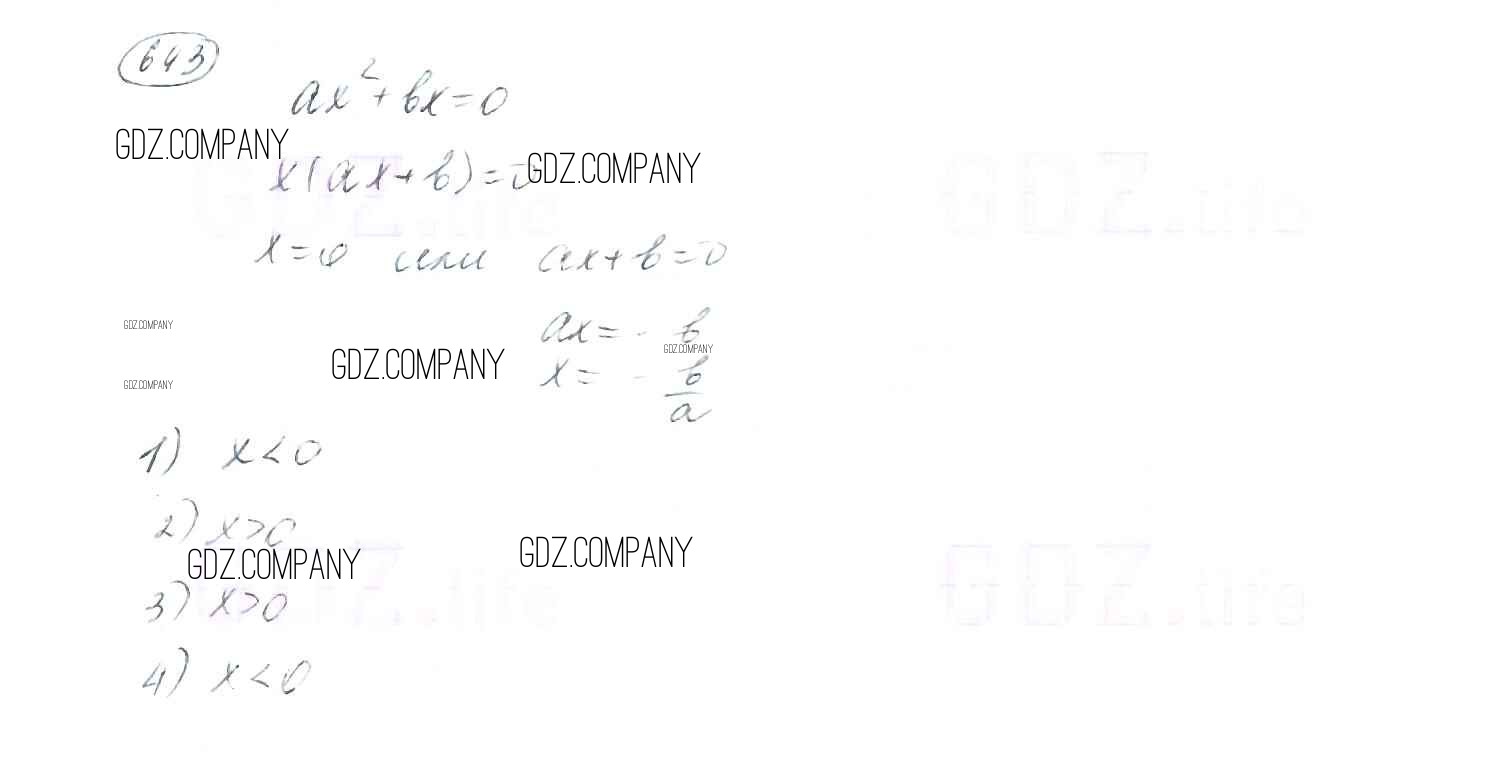 643
ax²+bx=0
GDZ.COMPANY
x(ax+b)=0 GDZ.COMPANY
x=0 или ax+b=0
GDZ.COMPANY
ax=-b
GDZ.COMPANY
GDZ.COMPANY
GDZ.COMPANY
x=-b/a
1) x<0
2) x>0
GDZ.COMPANY
GDZ.COMPANY
3) x>0
4) x<0
GDZ.life
GDZ.life
GDZ.life
GDZ.life